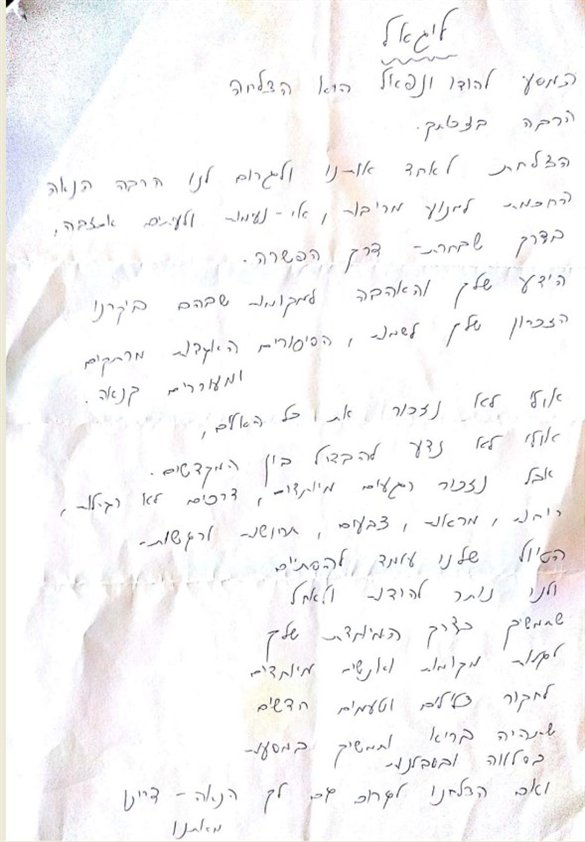 ליגאל
המסע להודו ונפאל הוא הצלחה
הרבה בזכותך.
הצלחת לאחד אותנו ולגרום לנו הרבה הנאה
החכמת למנוע מריבות, אי-נעימות ולעיתים אכזבה,
בדרך שבחרת - דרך הפשרה.
הידע שלך והאהבה למקומות שבהם ביקרנו
הזכרון שלך לשמות, הסיפורים האגדות מרתקים
ומעוררים קנאה.
אולי לא נזכור את כל האלים,
אולי לא נדע להבדיל בין המקדשים.
אבל נזכור רגעים מיוחדים, דרכים לא רגילות,
ריחות, מראות, צבעים, תחושות ורגשות
הטיול שלנו עומד להסתיים
ולנו נותר להודות ולאחל
שתמשיך בדרך המיוחדת שלך
לגלות מקומות ואנשים מיוחדים
לחקור צלילים וטעמים חדשים
שתהיה בריא ותמשיך במסעות
בסלווה ובסבלנות
ואם הצלחנו לגרום גם לך הנאה - דיינו
מאתנו